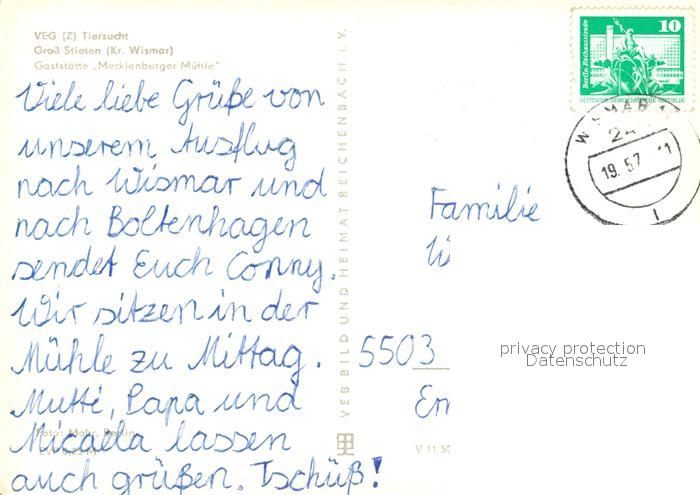 VEG (Z) Tierzucht
Groß Stieten (Kr. Wismar)
Gaststätte „Mecklenburger Mühle"
Viele liebe Grüße von
unserem Ausflug
nach Wismar und
nach Boltenhagen
sendet Euch Conny.
Wir sitzen in der
Mühle zu Mittag.
Mutti, Papa und
Micaela lassen
auch grüßen. Tschüß!
Foto: Mohr, Berlin
VEB BILD UND HEIMAT REICHENBACH i. V.
10
Berlin-Rathausstraße
DEUTSCHE DEMOKRATISCHE REPUBLIK
WISMAR 1
24
19.5.7
11
Familie
5503
V 11 50
privacy protection
Datenschutz